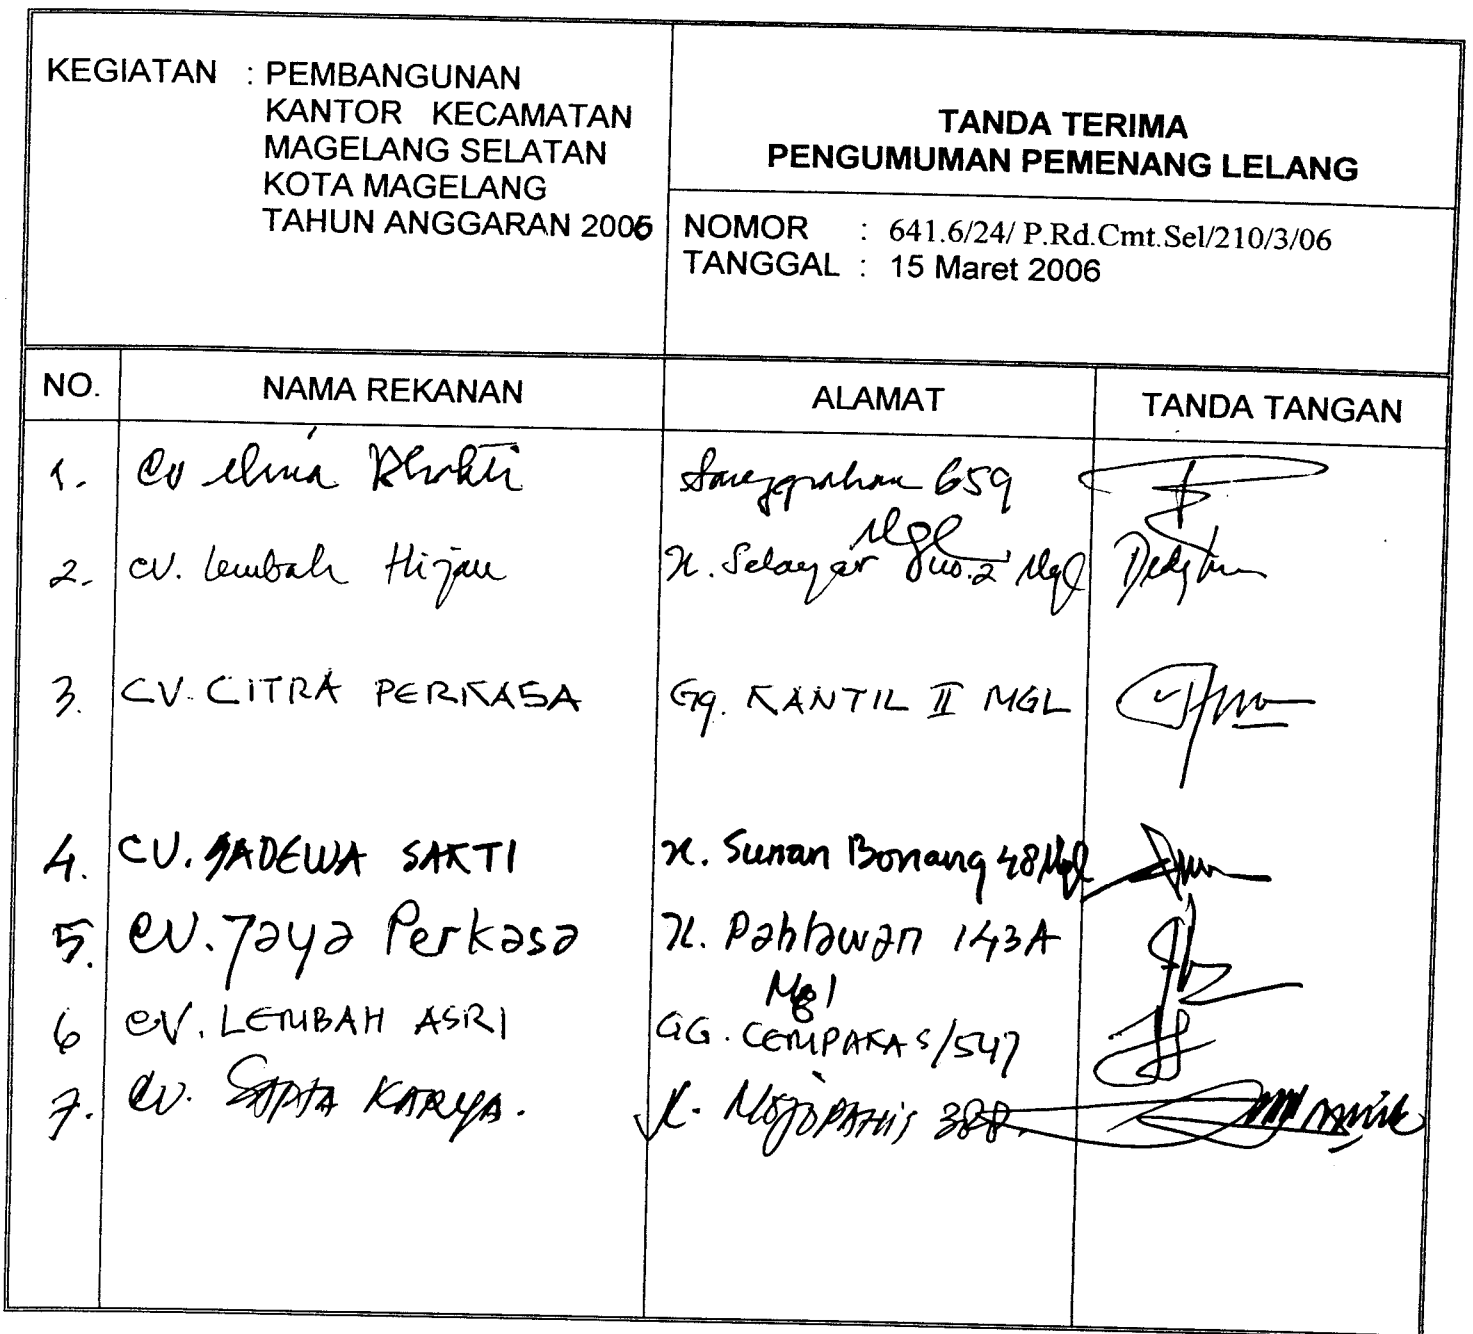 KEGIATAN : PEMBANGUNAN
KANTOR KECAMATAN
MAGELANG SELATAN
KOTA MAGELANG
TAHUN ANGGARAN 2006
TANDA TERIMA
PENGUMUMAN PEMENANG LELANG
NOMOR : 641.6/24/ P.Rd.Cmt.Sel/210/3/06
TANGGAL : 15 Maret 2006
NO. NAMA REKANAN ALAMAT TANDA TANGAN
1. CV 659
Mgl
2. CV. Lembah Hijau Jl. Selayar no.2 Mgl
3. CV. CITRA PERKASA Gg. KANTIL II MGL
4. CV. SADEWA SAKTI Jl. Sunan Bonang 48 Mgl
5. CV. Jaya Perkasa Jl. Pahlawan 143A
Mgl
6 CV. LEMBAH ASRI GG. CEMPAKA 5/547
7. CV. SAPTA KARYA. Jl. 388.